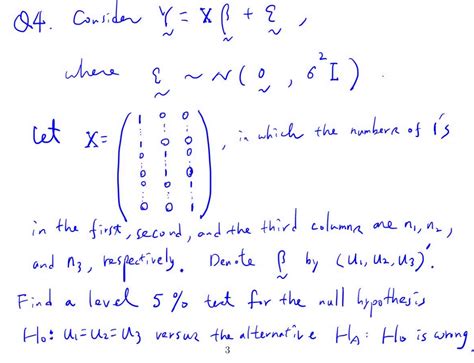 Q4. Consider Y = Xβ + ε ,
where ε ~ N( 0 , σ² I ) .
Let X = ( 1 0 0 ⋮ ⋮ ⋮ 1 0 0 0 1 0 ⋮ ⋮ ⋮ 0 1 0 0 0 1 ⋮ ⋮ ⋮ 0 0 1 ) , in which the numbers of 1's
in the first, second, and the third columns are n₁, n₂,
and n₃, respectively. Denote β by (u₁, u₂, u₃)′.
Find a level 5% test for the null hypothesis
H₀: u₁=u₂=u₃ versus the alternative H_A: H₀ is wrong.
3